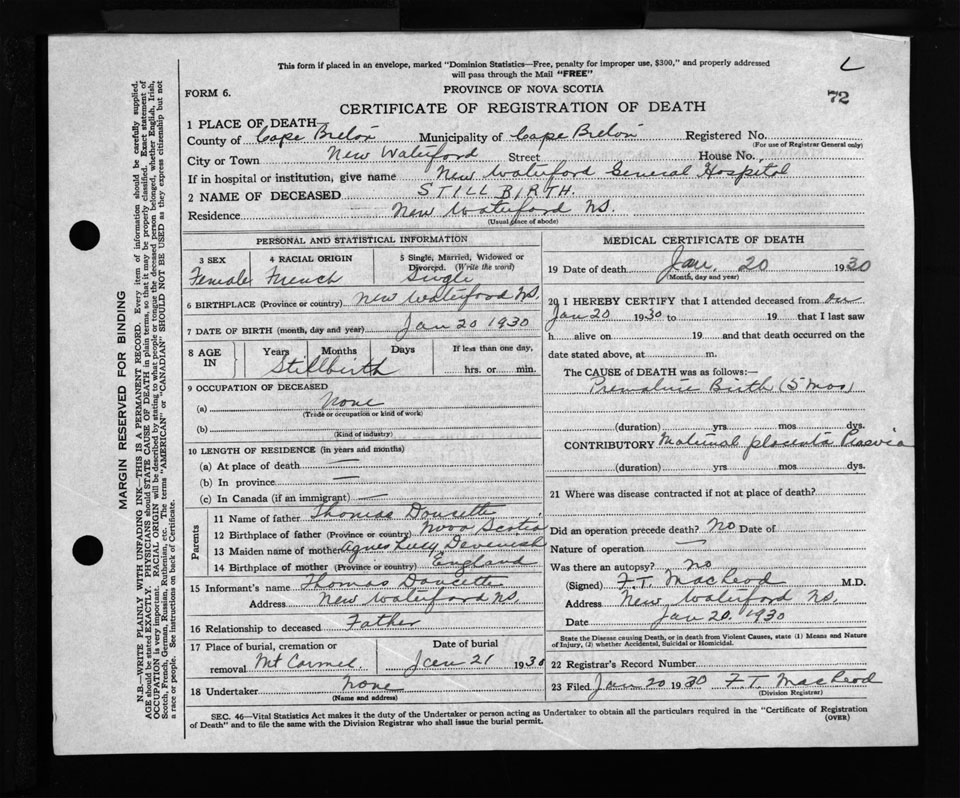 This form if placed in an envelope, marked "Dominion Statistics—Free, penalty for improper use, $300," and properly addressed
will pass through the Mail "FREE"
L
72
FORM 6.
PROVINCE OF NOVA SCOTIA
CERTIFICATE OF REGISTRATION OF DEATH
1 PLACE OF DEATH
County of Cape Breton Municipality of Cape Breton Registered No.
(For use of Registrar General only)
City or Town New Waterford Street House No.
If in hospital or institution, give name New Waterford General Hospital
2 NAME OF DECEASED STILL BIRTH.
Residence New Waterford NS.
(Usual place of abode)
PERSONAL AND STATISTICAL INFORMATION
3 SEX 4 RACIAL ORIGIN 5 Single, Married, Widowed or
Divorced. (Write the word)
Female French Single
6 BIRTHPLACE (Province or country) New Waterford NS.
7 DATE OF BIRTH (month, day and year) Jan 20 1930
8 AGE IN Years Months Days If less than one day,
Stillbirth hrs. or min.
9 OCCUPATION OF DECEASED
(a) None
(Trade or occupation or kind of work)
(b)
(Kind of industry)
10 LENGTH OF RESIDENCE (in years and months)
(a) At place of death —
(b) In province —
(c) In Canada (if an immigrant) —
Parents
11 Name of father Thomas Doucette
12 Birthplace of father (Province or country) Nova Scotia
13 Maiden name of mother Agnes Lucy Devenish
14 Birthplace of mother (Province or country) England
15 Informant's name Thomas Doucette
Address New Waterford NS.
16 Relationship to deceased Father
17 Place of burial, cremation or Date of burial
removal Mt Carmel Jan 21 1930
18 Undertaker None
(Name and address)
MEDICAL CERTIFICATE OF DEATH
19 Date of death Jan. 20 1930
(Month, day and year)
20 I HEREBY CERTIFY that I attended deceased from on
Jan 20 1930 to 19 that I last saw
h alive on 19 and that death occurred on the
date stated above, at m.
The CAUSE of DEATH was as follows:—
Premature Birth (5 mos)
(duration) yrs mos dys.
CONTRIBUTORY Maternal placenta Praevia
(duration) yrs. mos. dys.
21 Where was disease contracted if not at place of death?
Did an operation precede death? No Date of
Nature of operation —
Was there an autopsy? No
(Signed) F.T. MacLeod M.D.
Address New Waterford NS.
Date Jan 20. 1930
State the Disease causing Death, or in death from Violent Causes, state (1) Means and Nature
of Injury, (2) whether Accidental, Suicidal or Homicidal.
22 Registrar's Record Number
23 Filed Jan 20 1930 F.T. MacLeod
(Division Registrar)
SEC. 46—Vital Statistics Act makes it the duty of the Undertaker or person acting as Undertaker to obtain all the particulars required in the "Certificate of Registration
of Death" and to file the same with the Division Registrar who shall issue the burial permit.
(OVER)
MARGIN RESERVED FOR BINDING
N.B.—WRITE PLAINLY WITH UNFADING INK—THIS IS A PERMANENT RECORD. Every item of information should be carefully supplied.
AGE should be stated EXACTLY. PHYSICIANS should STATE CAUSE OF DEATH in plain terms, so that it may be properly classified. Exact statement of
OCCUPATION is very important. RACIAL ORIGIN will be described by stating to what people or tongue the deceased person belonged, whether English, Irish,
Scotch, French, German, Russian, Ruthenian, etc. The terms "AMERICAN" or "CANADIAN" SHOULD NOT BE USED as they express citizenship but not
a race or people. See instructions on back of Certificate.